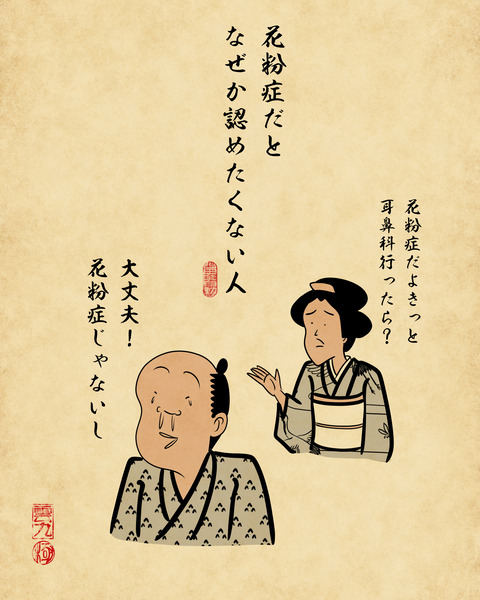 花粉症だと
なぜか認めたくない人
花粉症だよきっと
耳鼻科行ったら？
大丈夫！
花粉症じゃないし